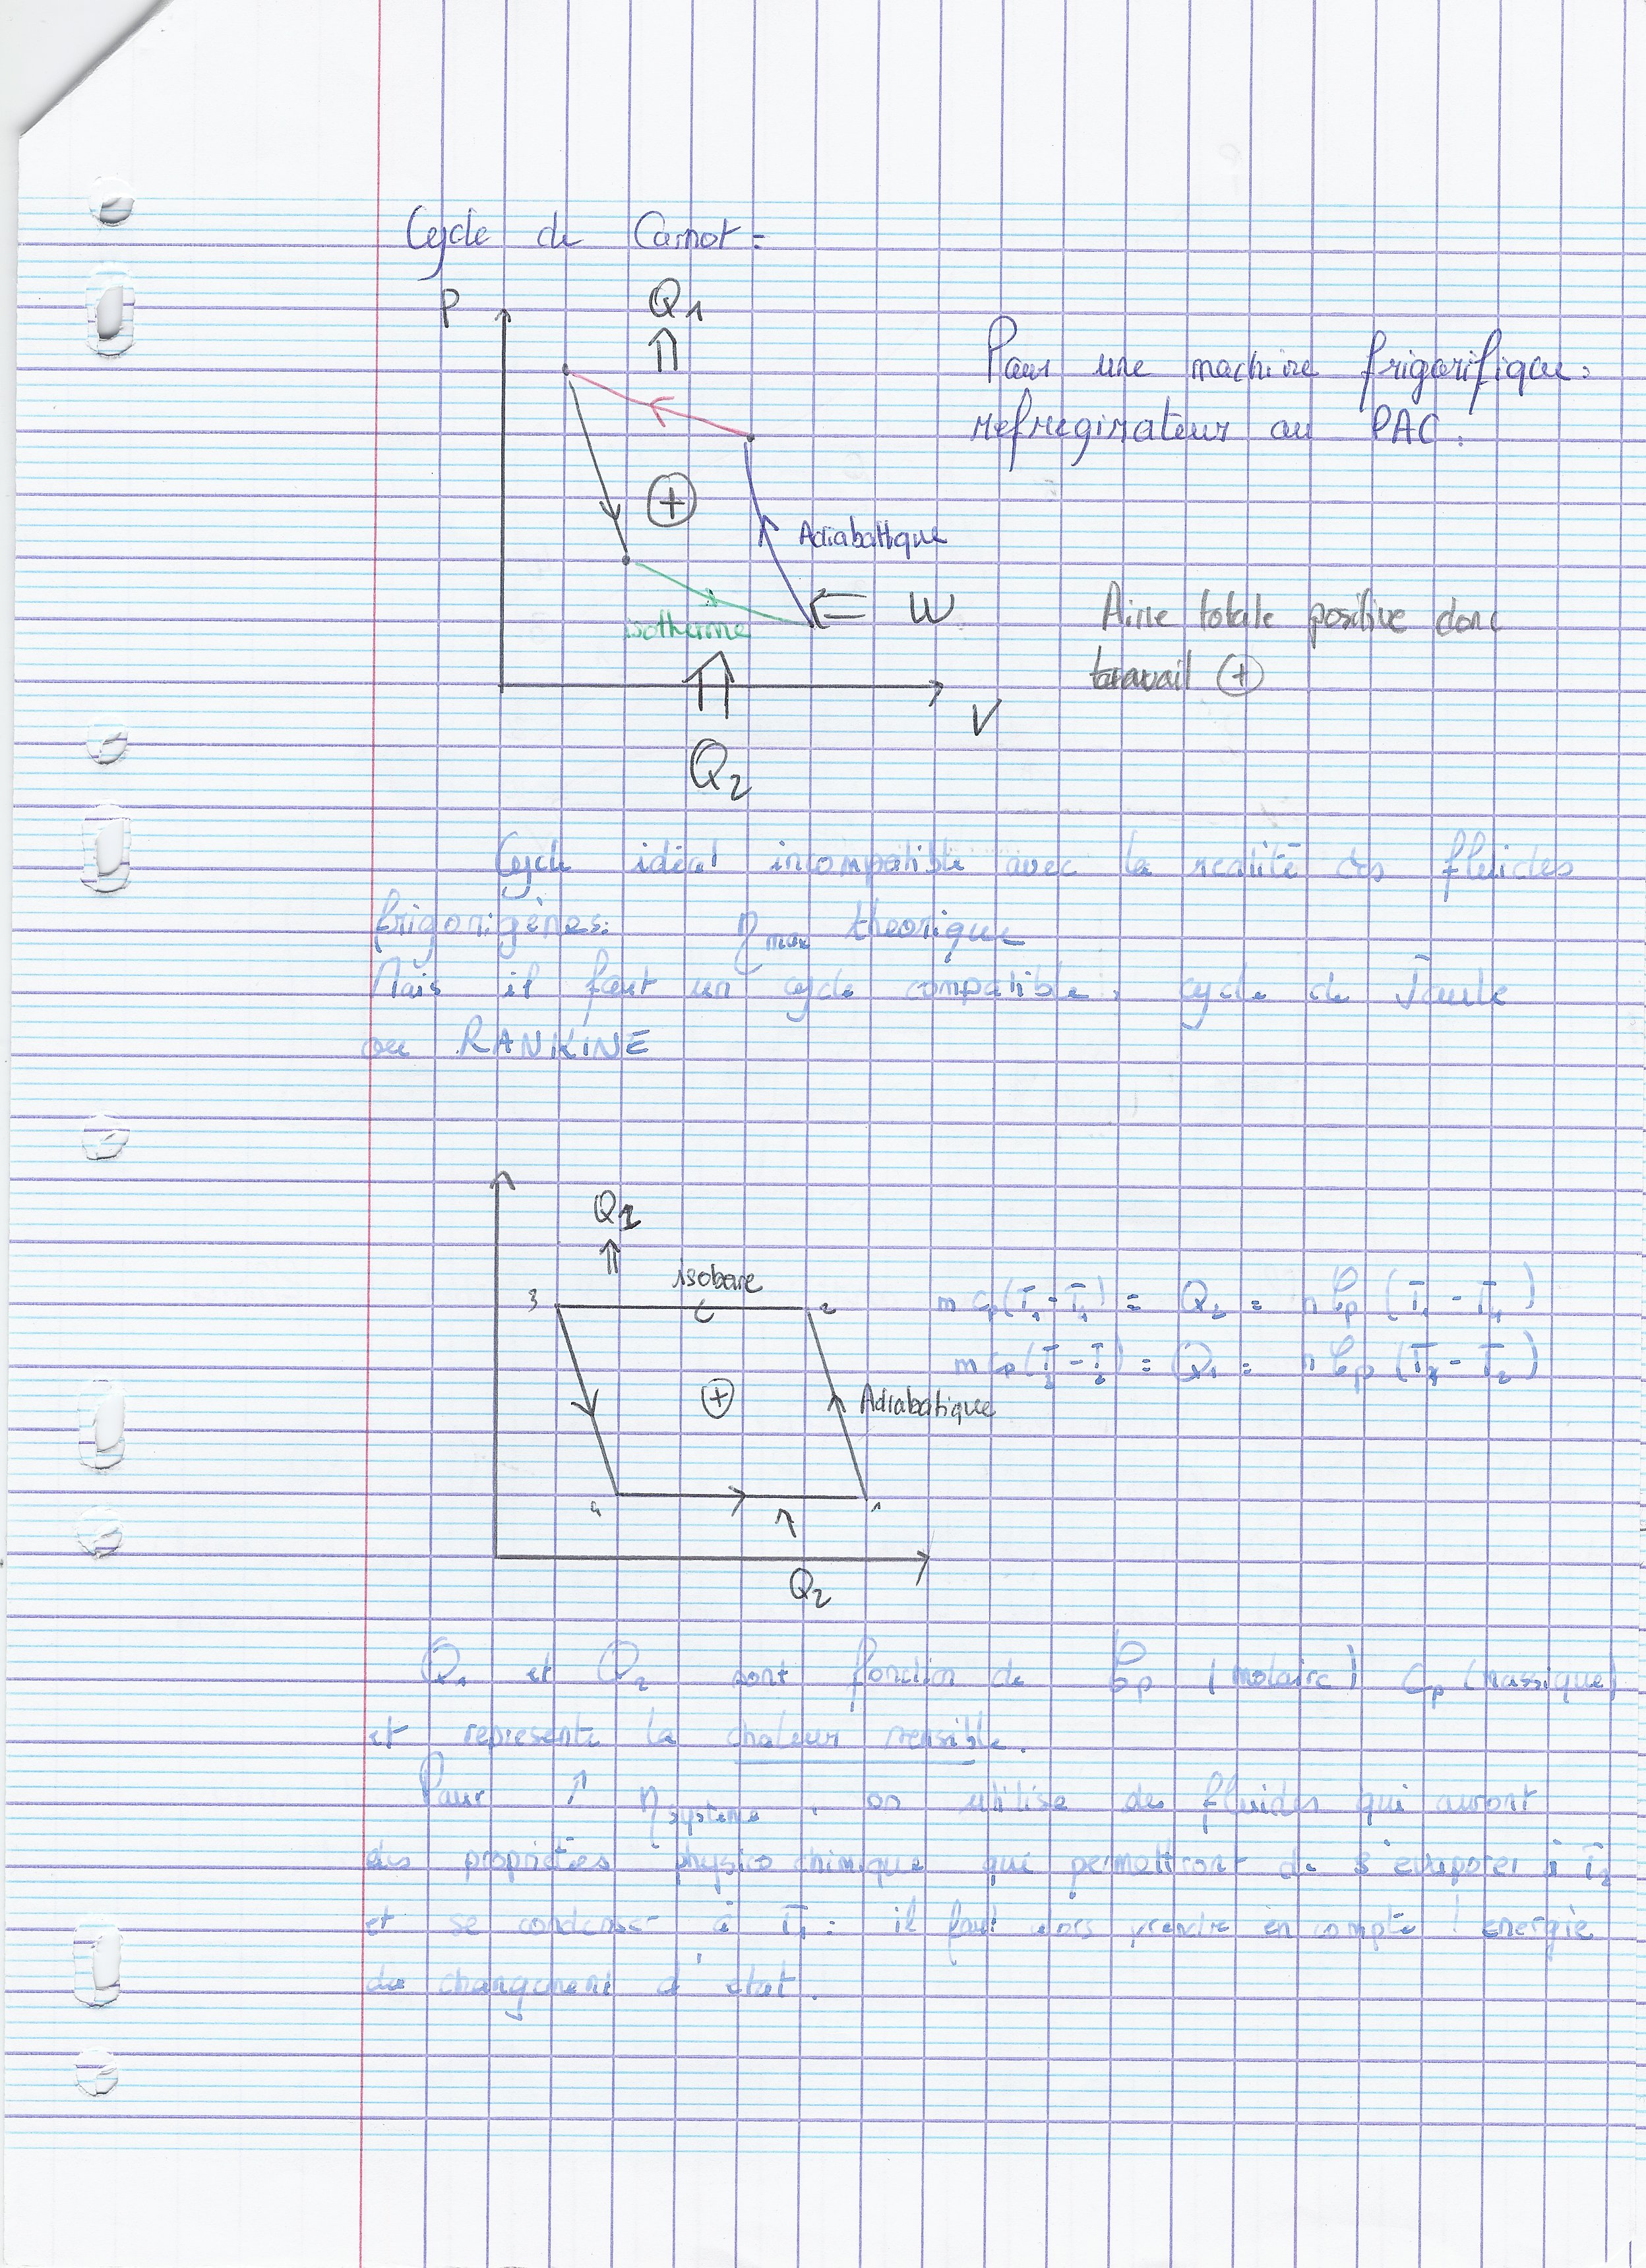 Cycle de Carnot :
P
Q1
Pour une machine frigorifique :
refregirateur ou PAC.
+
Adiabattque
isotherme
W
Aire totale positive donc
travail +
V
Q2
Cycle idéal incompatible avec la réalité des fluides
frigorigènes. η max théorique
Mais il faut un cycle compatible, cycle de Joule
ou RANKINE
Q1
isobare
3
2
m cp(T1 - T4) = Q2 = n Cp (T1 - T4)
m cp(T3 - T2) = Q1 = n Cp (T3 - T2)
+
Adiabatique
4
1
Q2
Q1 et Q2 sont fonction de Cp (molaire) Cp (massique)
et représente la chaleur sensible.
Pour ↑ η système, on utilise des fluides qui auront
des propriétés physico chimique qui permettront de s'évaporer à T2
et se condenser à T1 : il faut alors prendre en compte l'énergie
de changement d'état.